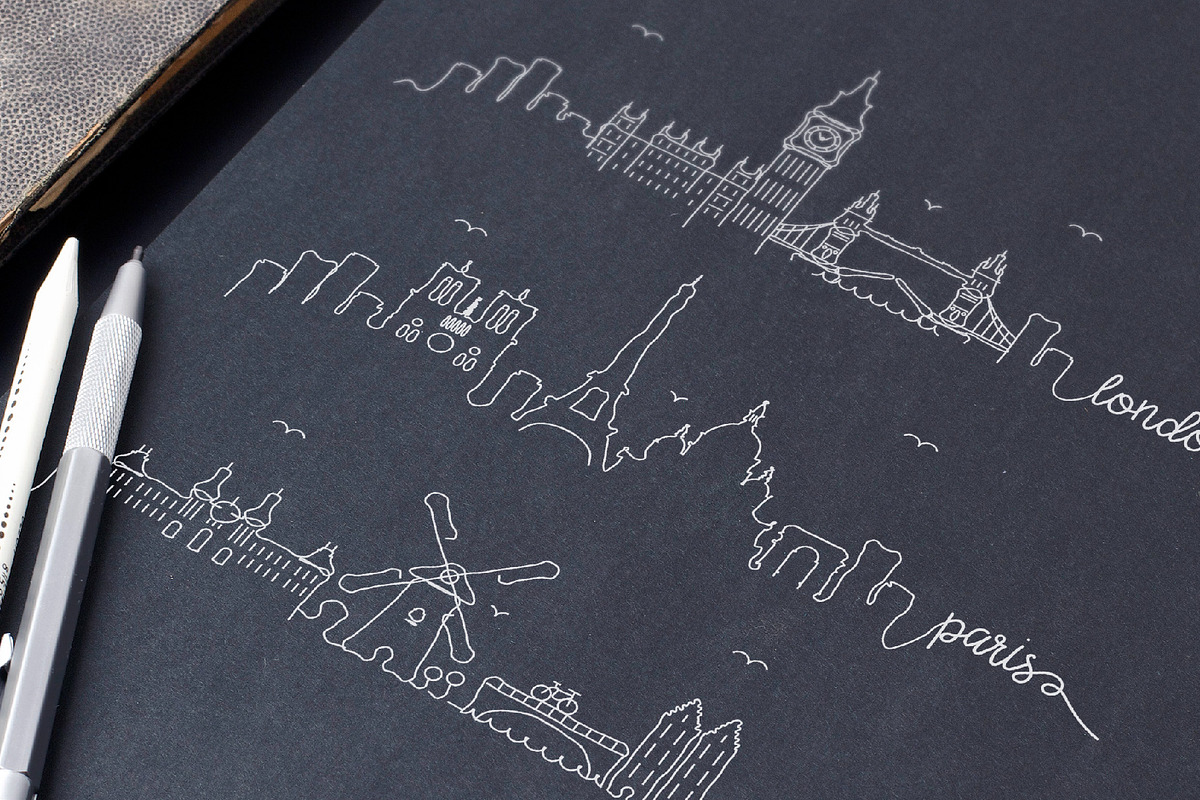 londo
paris